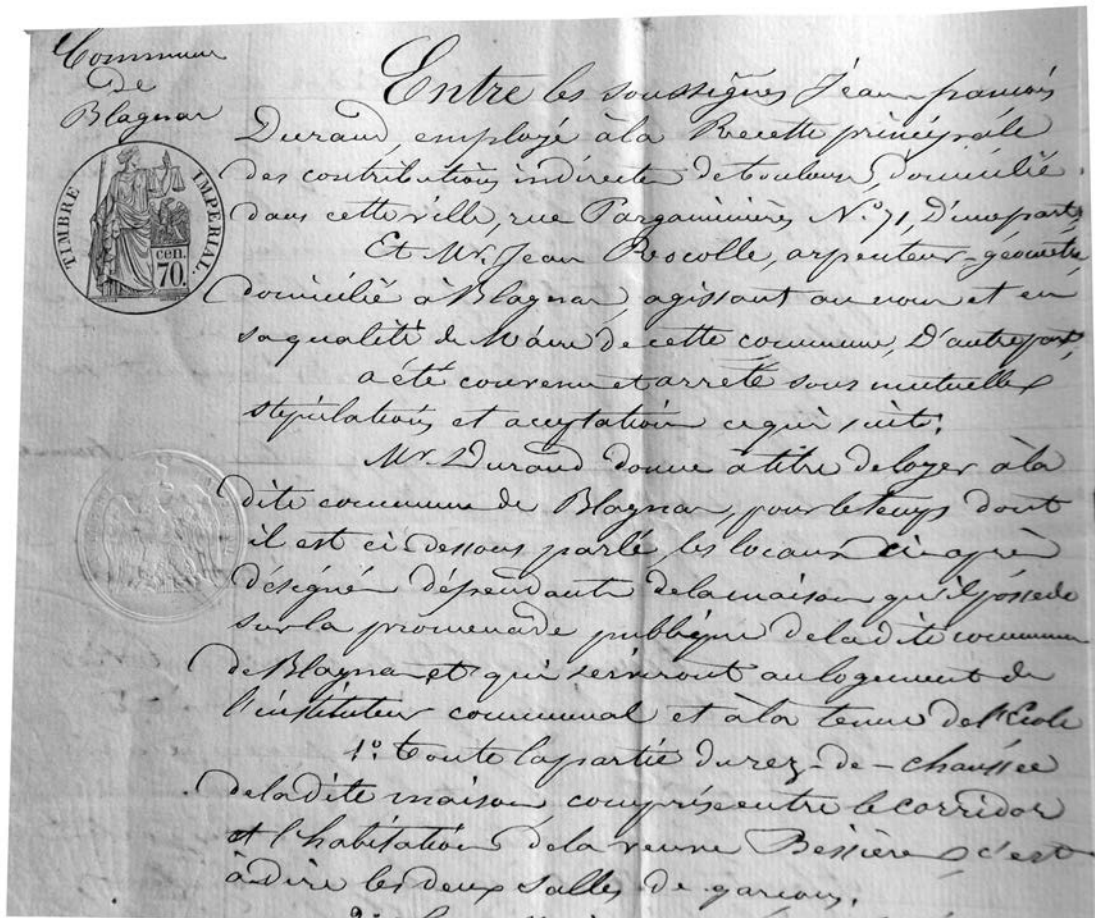 Commune
de
Blagnac
TIMBRE IMPERIAL.
cen.
70.
Entre les soussignés Jean-françois
Durand, employé à la Recette principale
des contributions indirectes de toulouse, domicilié
dans cette ville, rue Pargaminières N.° 71, D'une part,
Et Mr. Jean Rocolle, arpenteur-géomètre,
domicilié à Blagnac, agissant au nom et en
sa qualité de Maire de cette commune, D'autre part,
a été convenu et arrêté sous mutuelles
stipulations et acceptation ce qui suit:
Mr. Durand donne à titre de loyer à la
dite commune de Blagnac, pour le temps dont
il est ci-dessous parlé, les locaux ci-après
désignés dépendants de la maison qu'il possède
sur la promenade publique de la dite commune
de Blagnac et qui serviront au logement de
l'instituteur communal et à la tenue de l'Ecole
1.° toute la partie du rez-de-chaussée
de la dite maison comprise entre le corridor
et l'habitation de la veuve Bessières c'est
à dire les deux salles de garçons.